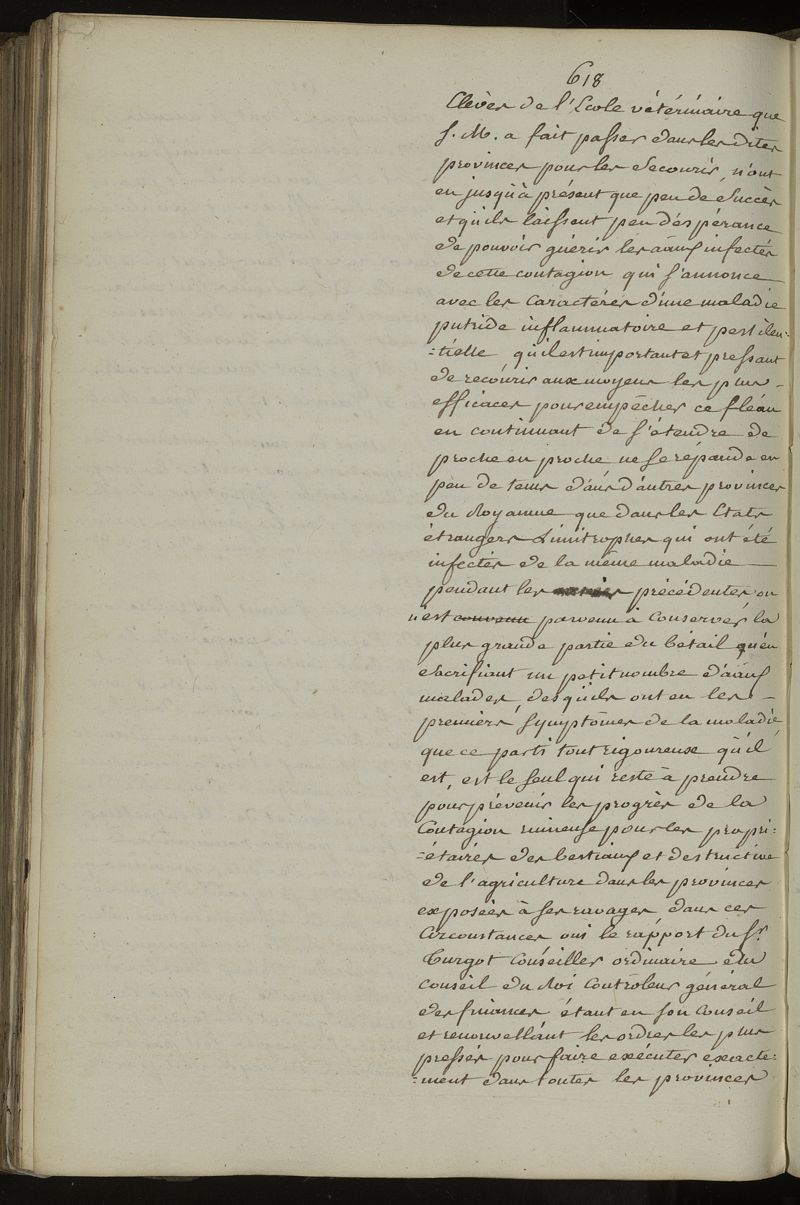 618
Elèves de l'Ecole vétérinaire que
S. M. a fait passer dans les dites
provinces pour les secourir, n'ont
eu jusqu'à présent que peu de succès
et qu'ils laissent peu d'espérance
de pouvoir guérir les aāux infectés
de cette contagion qui s'annonce
avec les caractéres d'une maladie
putride inflammatoire et pestilen-
=tielle qu'il est important et pressant
de recourir aux moyens les plus
efficaces pour empêcher ce fléau
en continuant de s'étendre de
proche en proche ne se répande en
peu de tems dans d'autres provinces
du Royaume que dans les Etats
étrangers Limitrophes qui ont été
infectés de la même maladie
pendant les années précédentes on
n'est convenu parvenu à conserver la
plus grande partie du bétail qu'en
sacrifiant un petit nombre d'aāux
malades, dès qu'ils ont eu les
premiers symptômes de la maladie
que ce parti tout rigoureuse qu'il
est, est le seul qui reste à prendre
pour prévenir les progrès de la
Contagion ruineuse pour les propri=
=étaires des bestiaux et destructive
de l'agriculture dans les provinces
exposées à ses ravages, dans ces
Circonstances ouï le rapport du Sr.
Turgot Conseiller ordinaire du
Conseil du Roi Controleur général
des finances étant en son Conseil
et renouvellant les ordres les plus
pressés pour faire exécuter exacte=
=ment dans toutes les provinces